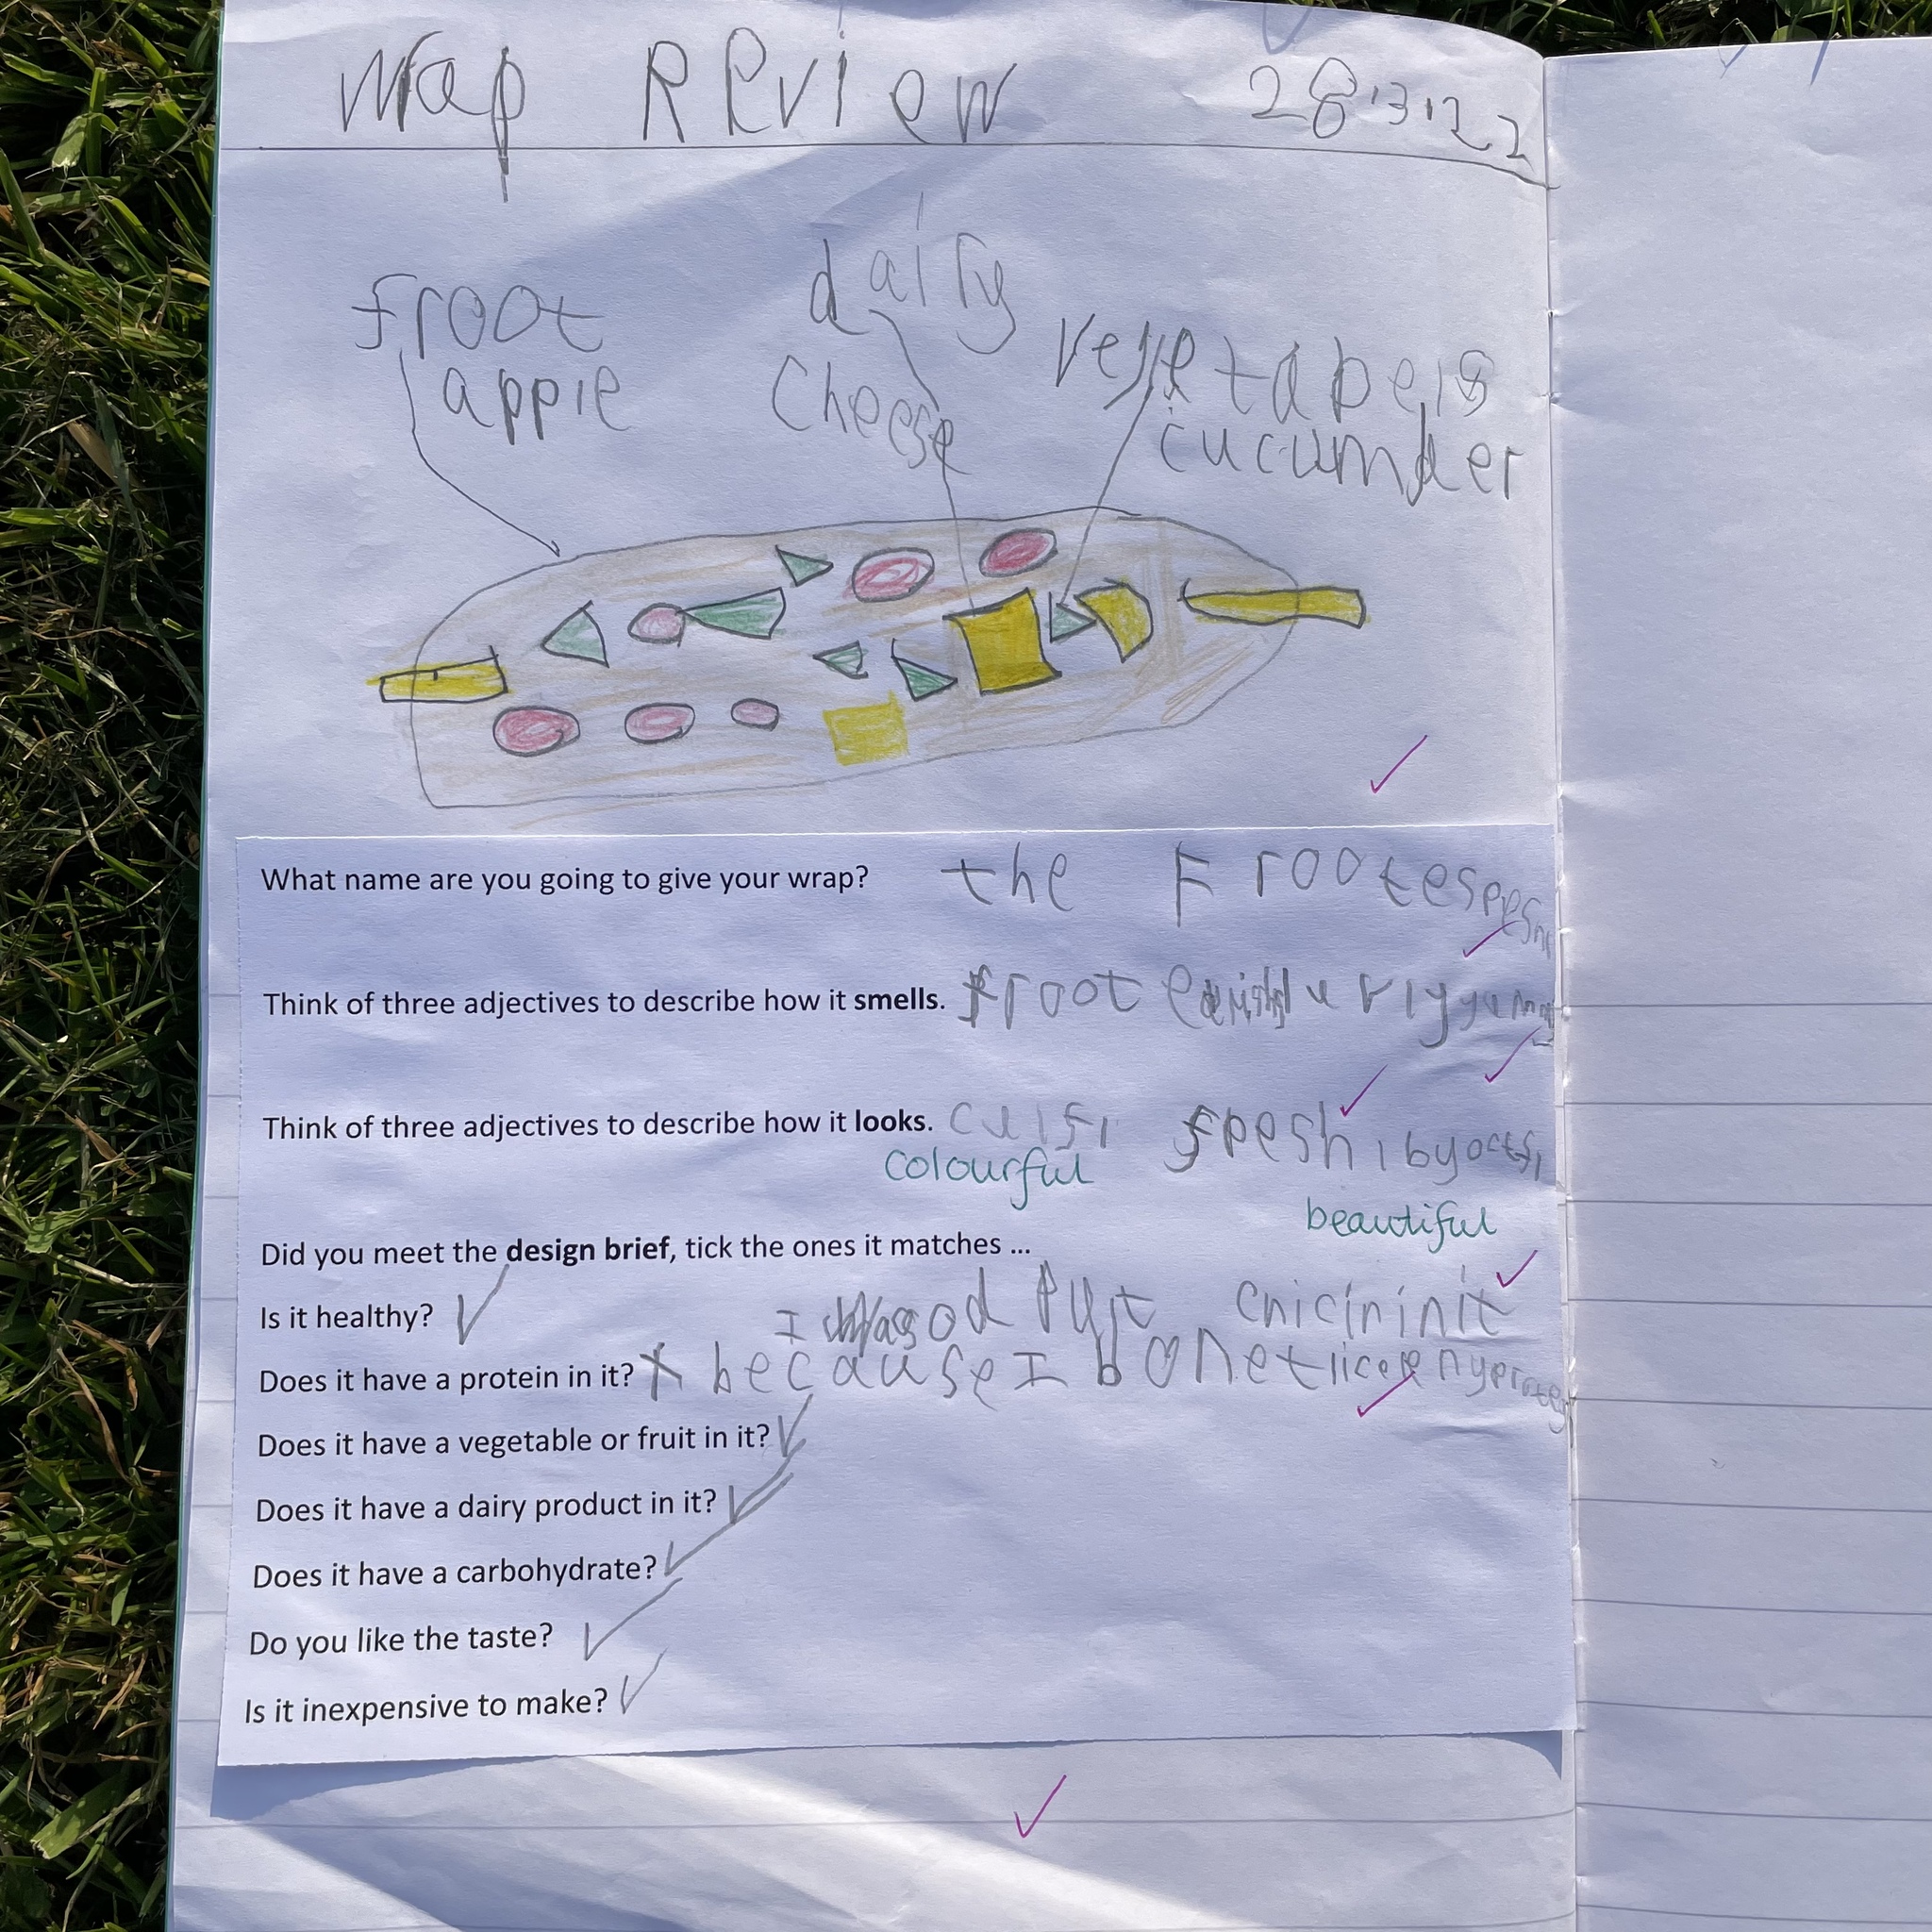 Wrap Review 28.3.22
dairy
froot
vegetabels
apple
Cheese
cucumber
What name are you going to give your wrap? the Frootespesh
Think of three adjectives to describe how it smells. froote
Think of three adjectives to describe how it looks. culfi fresh, byootfi
colourful
beautiful
Did you meet the design brief, tick the ones it matches ...
Is it healthy? ✓ I put chicin in it
Does it have a protein in it? X because I bonet lice eny
Does it have a vegetable or fruit in it? ✓
Does it have a dairy product in it? ✓
Does it have a carbohydrate? ✓
Do you like the taste? ✓
Is it inexpensive to make? ✓